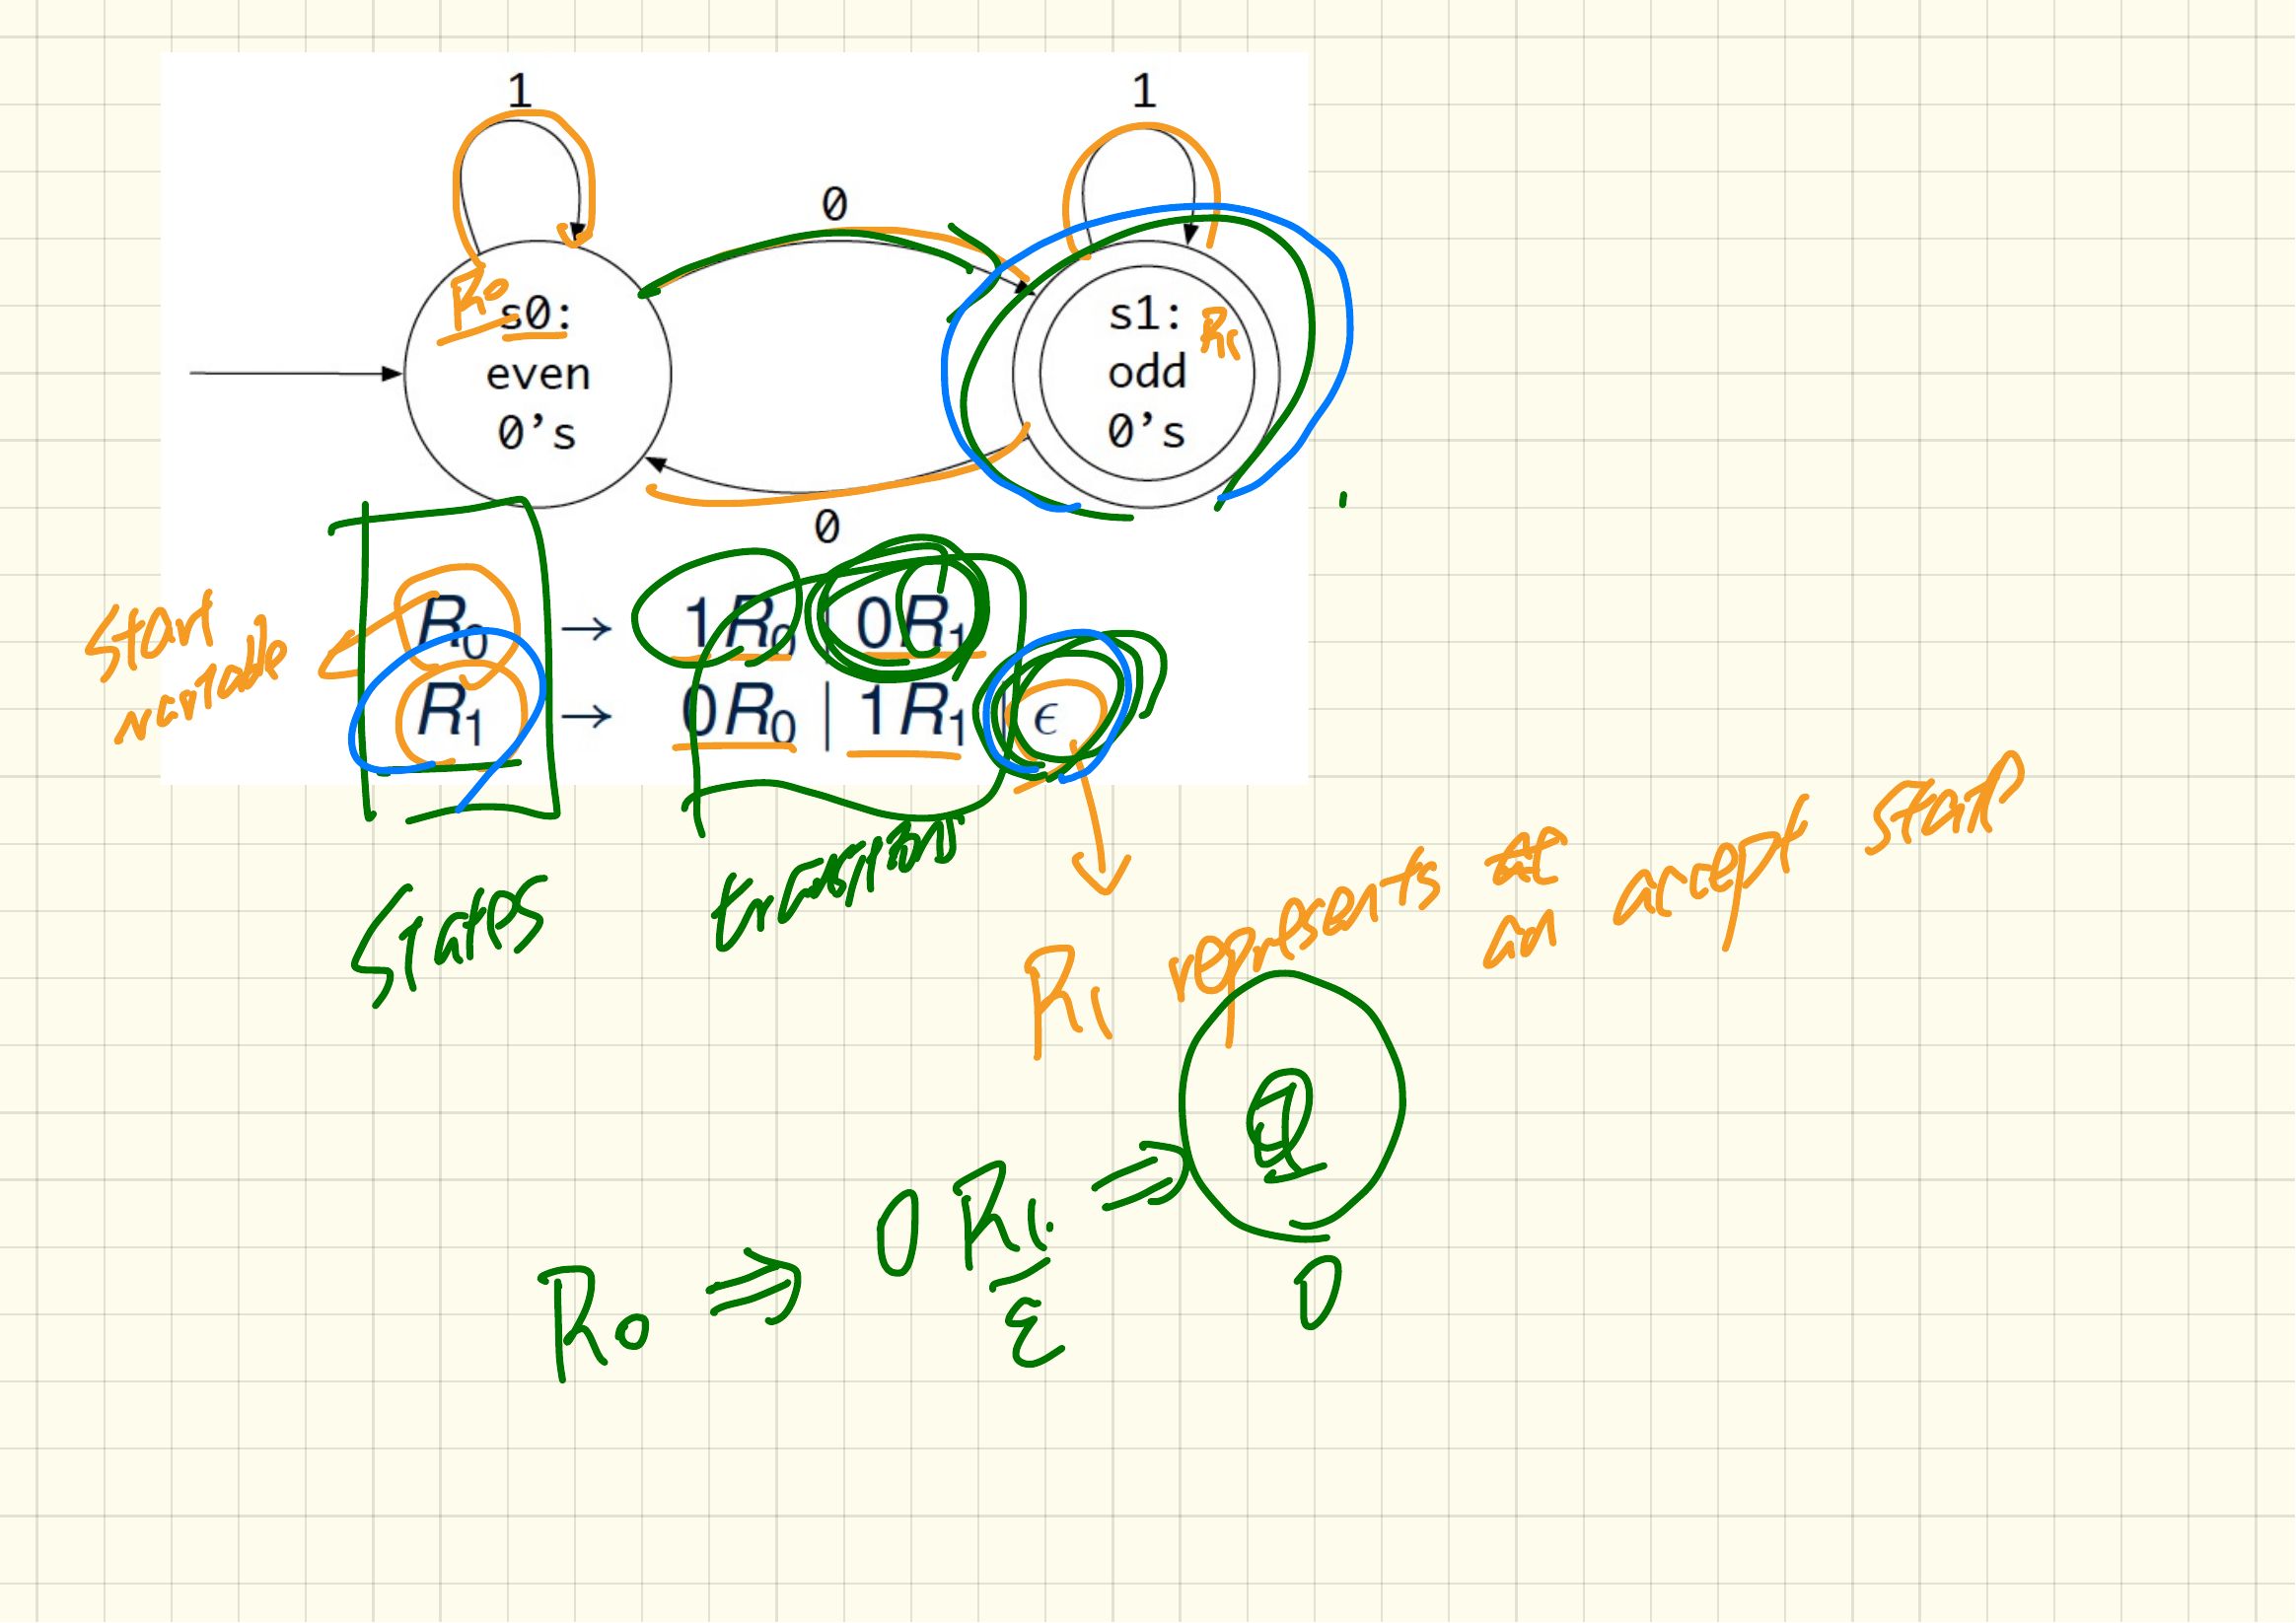 1 1
0
R0 s0: s1: R1
even odd
0's 0's
0
start variable
R0 → 1R0 | 0R1
R1 → 0R0 | 1R1 | ϵ
states transitions
R1 represents an accept state
R0 ⇒ 0R1 ⇒
ε 0